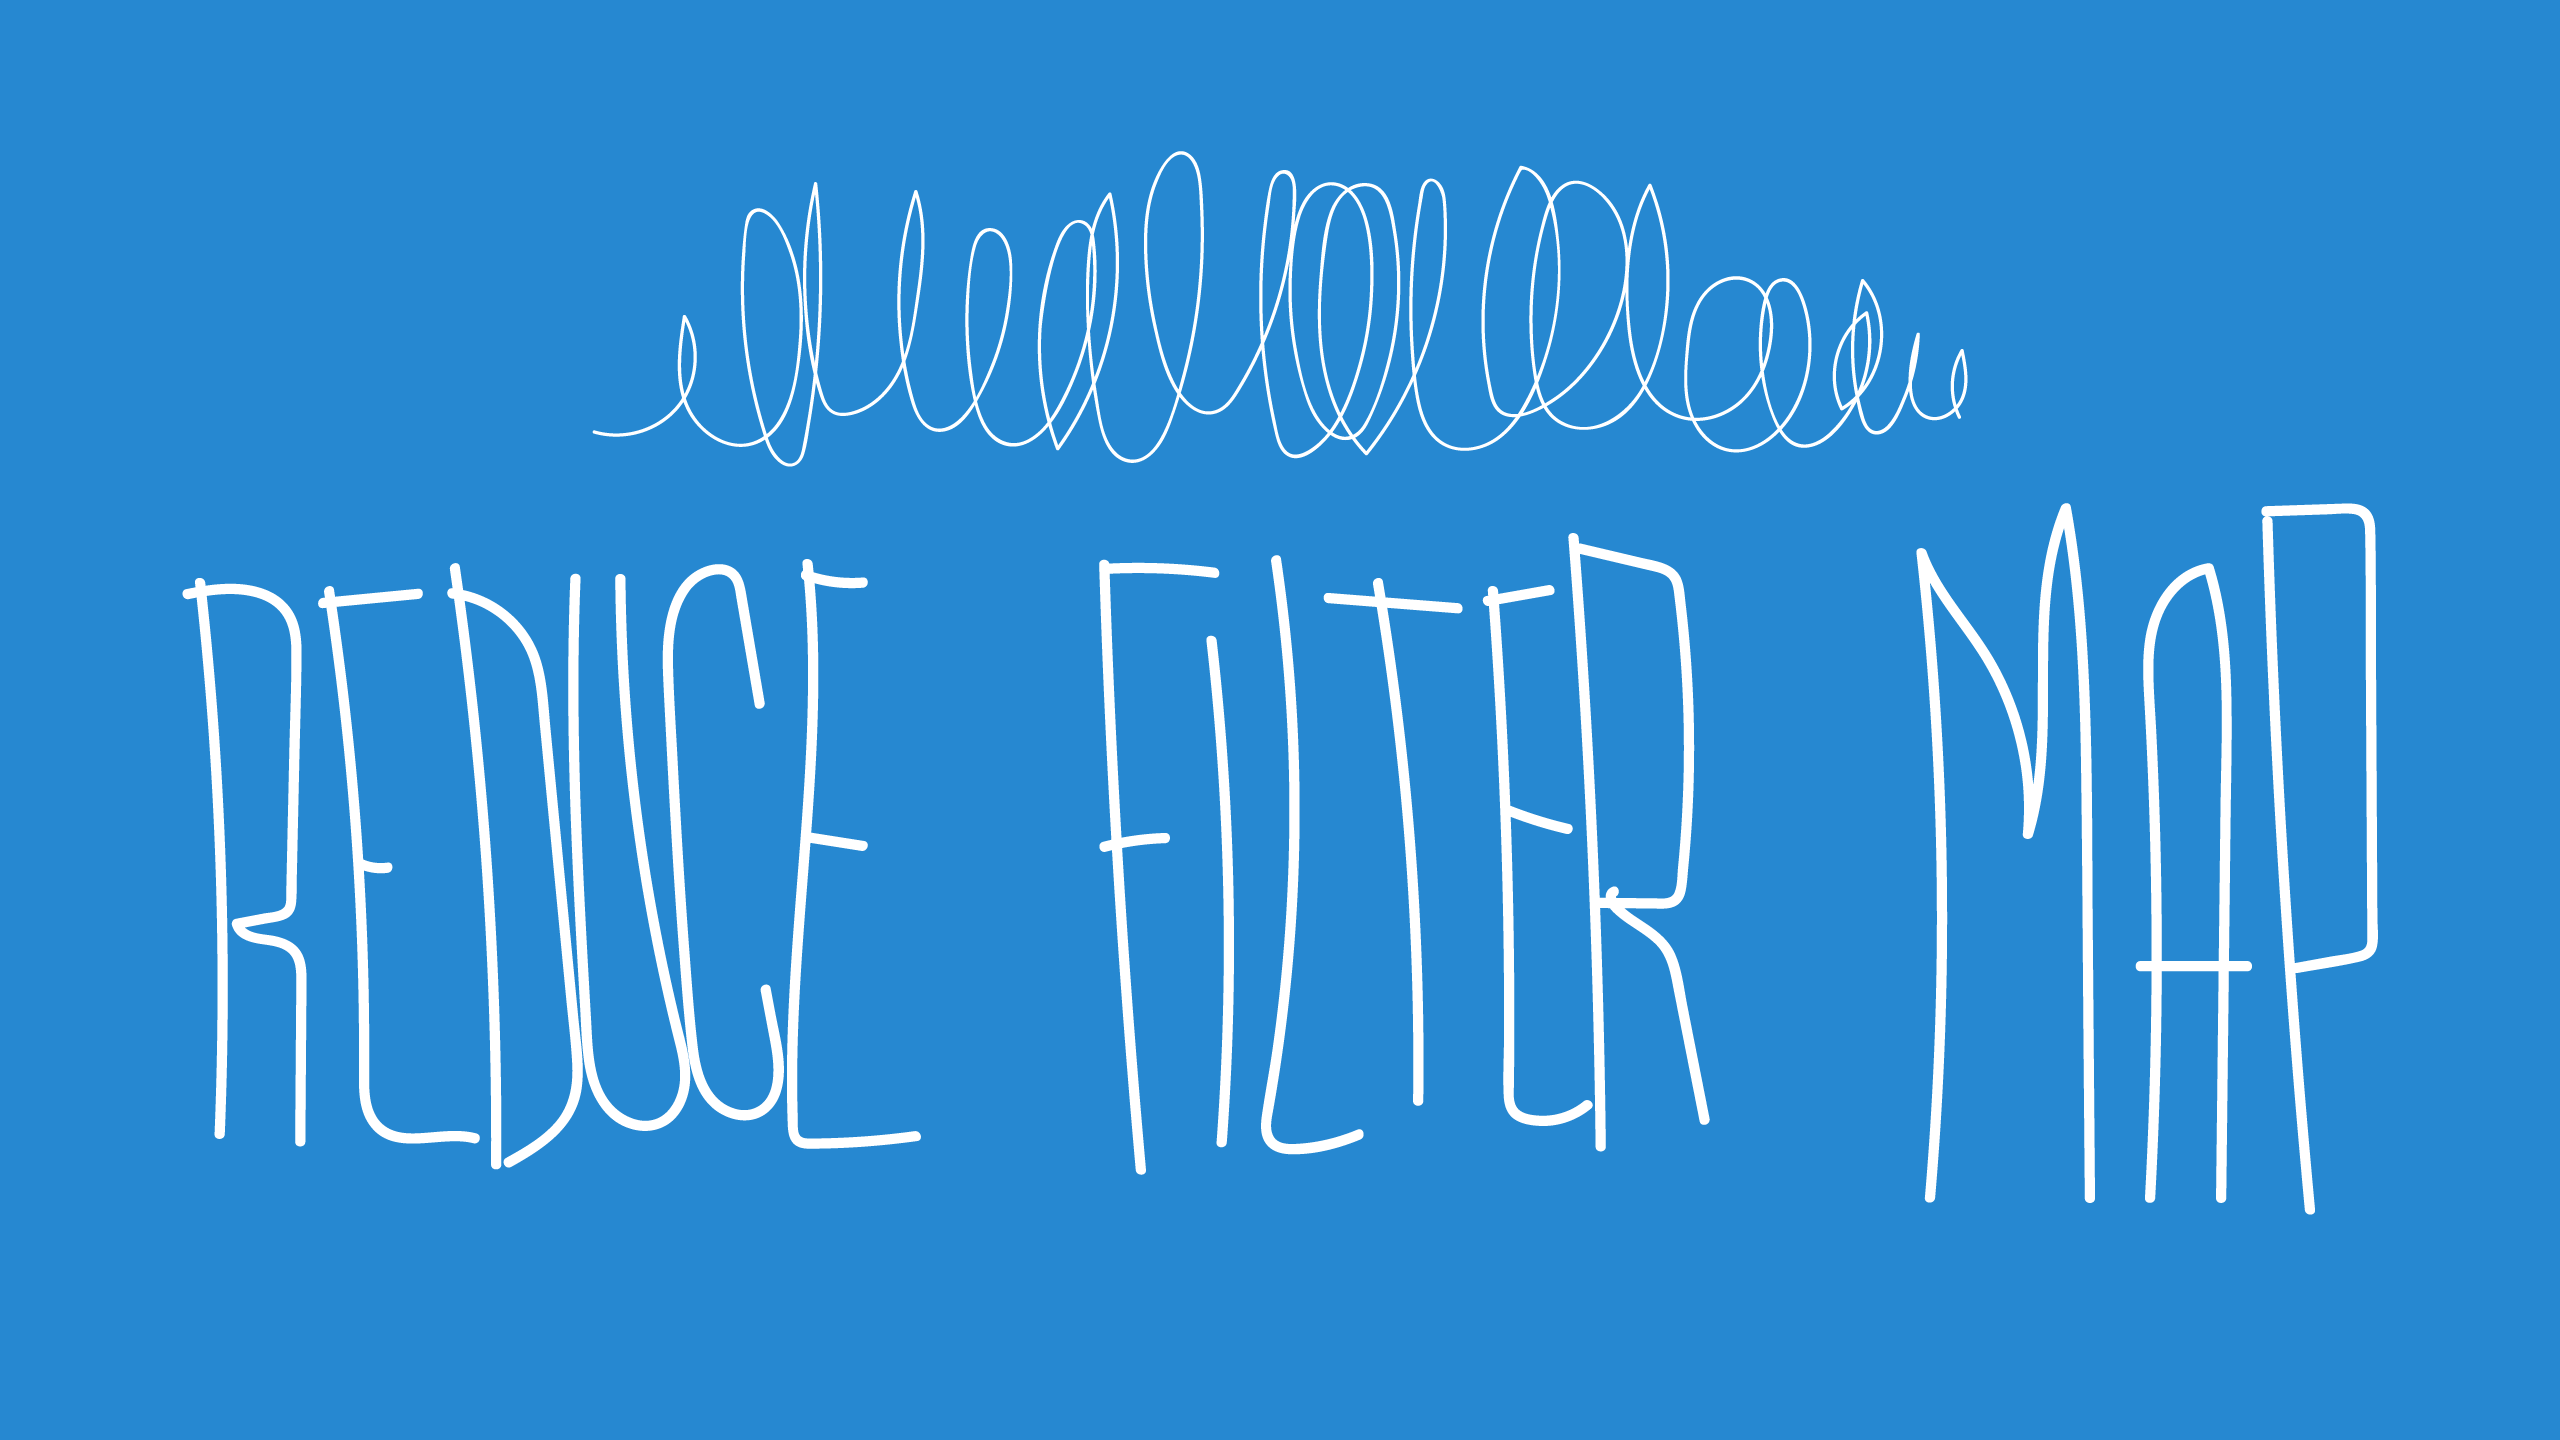 REDUCE FILTER MAP